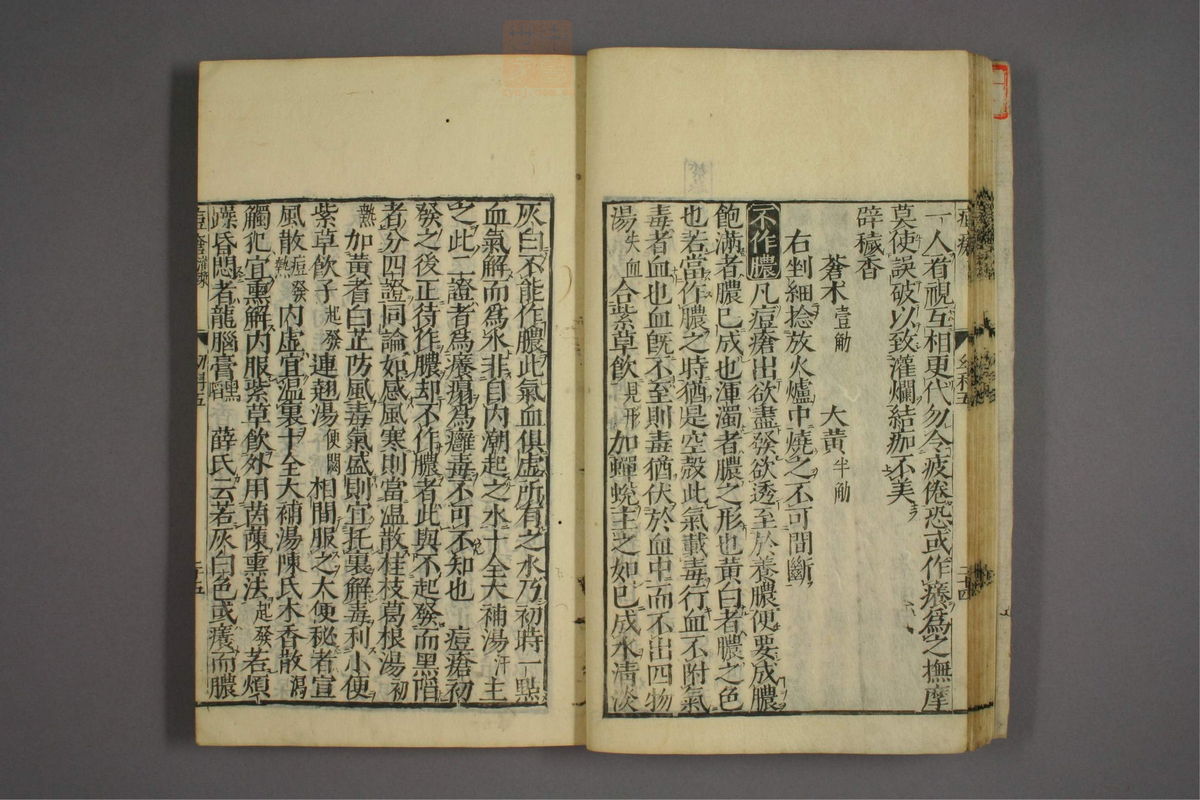 一人看視互相更代勿令疲倦恐或作癢為之撫摩
莫使誤破以致灌爛結痂不美
辟穢香
蒼朮壹觔 大黃半觔
右剉細捻放火爐中燒之不可間斷
不作膿 凡痘瘡出欲盡發欲透至於養膿便要成膿
飽滿者膿已成也渾濁者膿之形也黃白者膿之色
也若當作膿之時猶是空殼此氣載毒行血不附氣
毒者血也血既不至則毒猶伏於血中而不出四物
湯失血合紫草飲見形加蟬蛻主之如已成水清淡
灰白不能作膿此氣血俱虛所有之水乃初時一點
血氣解而為水非自內潮起之水十全大補湯汗主
之此二證者為癢瘍為癰毒不可不知也 痘瘡初
發之後正待作膿却不作膿者此與不起發而黑陷
者分四證同論如感風寒則當溫散桂枝葛根湯初
熱加黃耆白芷防風毒氣盛則宜托裏解毒利小便
紫草飲子起發連翹湯便閉相間服之大便秘者宣
風散痘發熱內虛宜溫裏十全大補湯陳氏木香散瀉
觸犯宜熏解內服紫草飲外用茵蔯熏法起發若煩
躁昏悶者龍腦膏黑陷 薛氏云若灰白色或癢而膿
幼科五
二十五